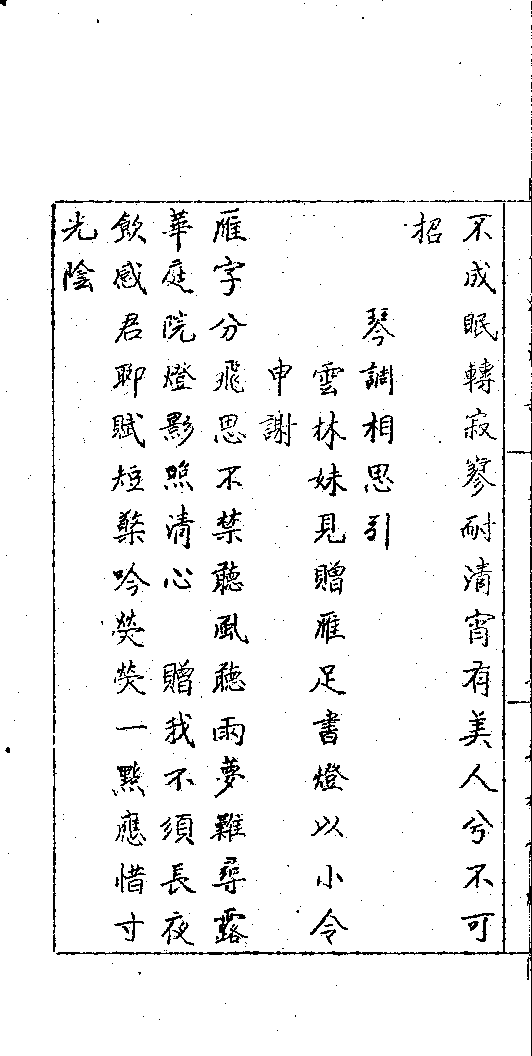 不成眠轉寂寥耐清宵有美人兮不可
招
琴調相思引
雲林妹見贈雁足書燈以小令
申謝
雁字分飛思不禁聽風聽雨夢難尋露
華庭院燈影照清心　贈我不須長夜
飲感君聊賦短檠吟熒熒一點應惜寸
光陰